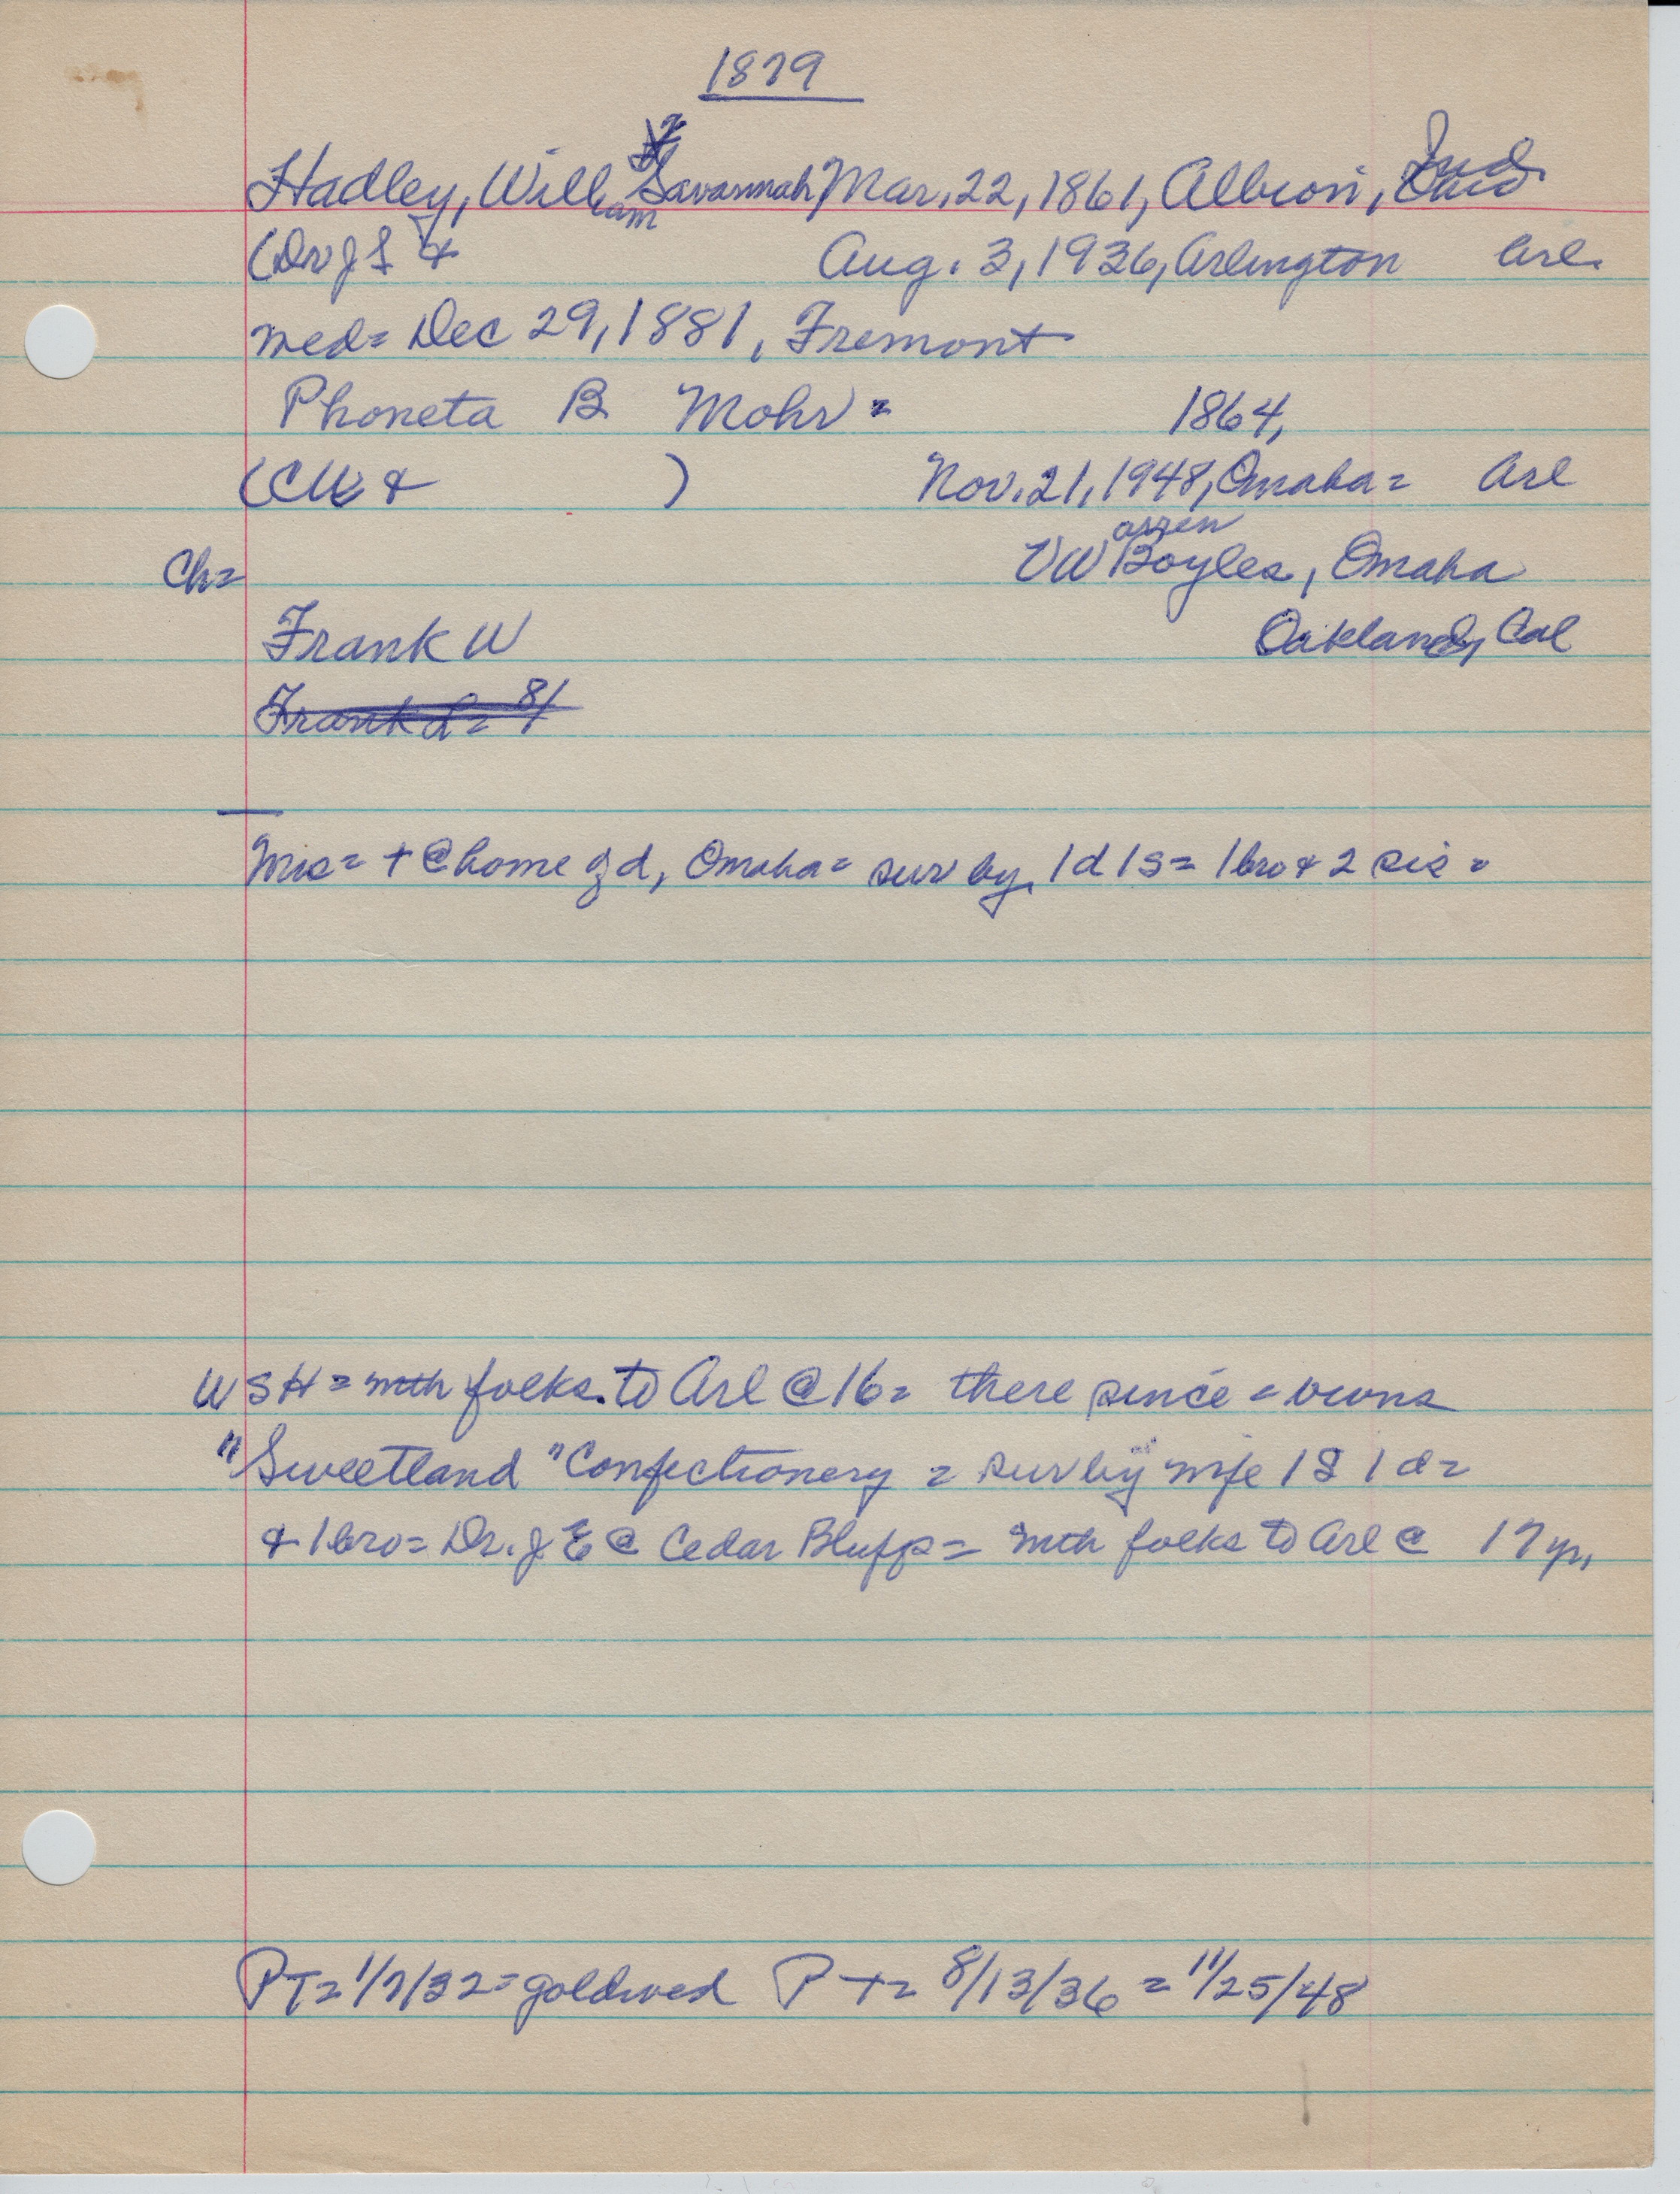 1879
Hadley, William Savannah Mar. 22, 1861, Albion, Ind
(Dr J S & Aug. 3, 1936, Arlington Arl.
med= Dec 29, 1881, Fremont
Phoneta B Mohr = 1864,
( & ) Nov. 21, 1948, Omaha = Arl
arren
Ch= VW Boyles, Omaha
Frank W Oakland, Cal
Frank d= 81
Mrs= + @ home of d, Omaha= sur by 1 d 1 s= 1 bro & 2 sis =
WSH = with folks to Arl @ 16= there since = owns
"Sweetland" Confectionery = sur by wife 1 S 1 d=
& 1 bro= Dr. J E @ Cedar Bluffs= with folks to Arl @ 17 yr,
PT= 1/7/32= goldwed P T= 8/13/36 = 11/25/48